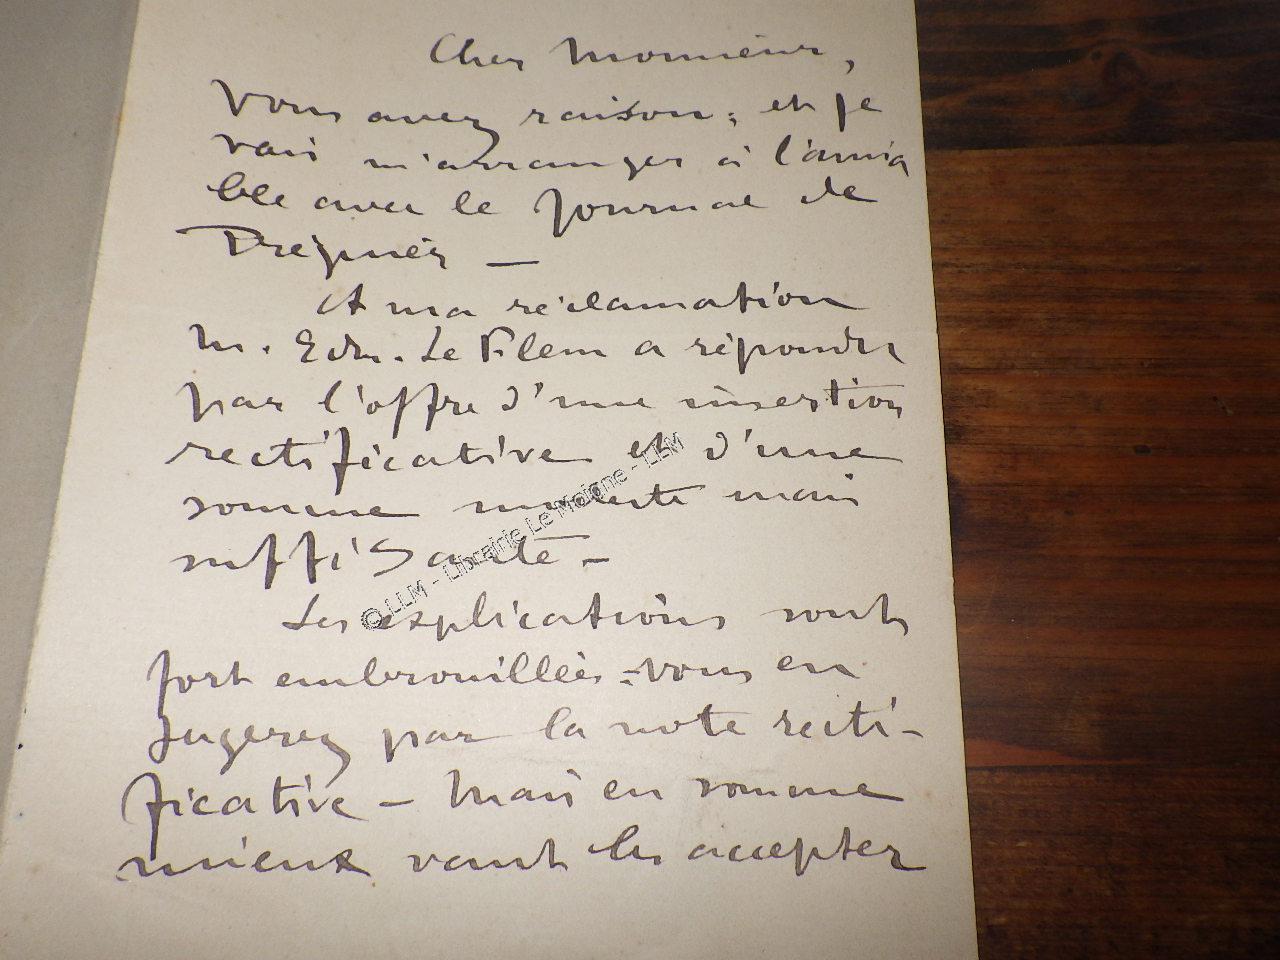 Cher Monsieur,
Vous avez raison; et je
vais m'arranger à l'amia
ble avec le Journal de
Tréguier —
A ma réclamation
M. Edm. Le Flem a répondu
par l'offre d'une insertion
rectificative et d'une
somme modeste mais
suffisante —
Les explications sont
fort embrouillées : vous en
jugerez par la note recti-
ficative — Mais en somme
mieux vaut les accepter
© LLM - Librairie Le Moigne - LLM